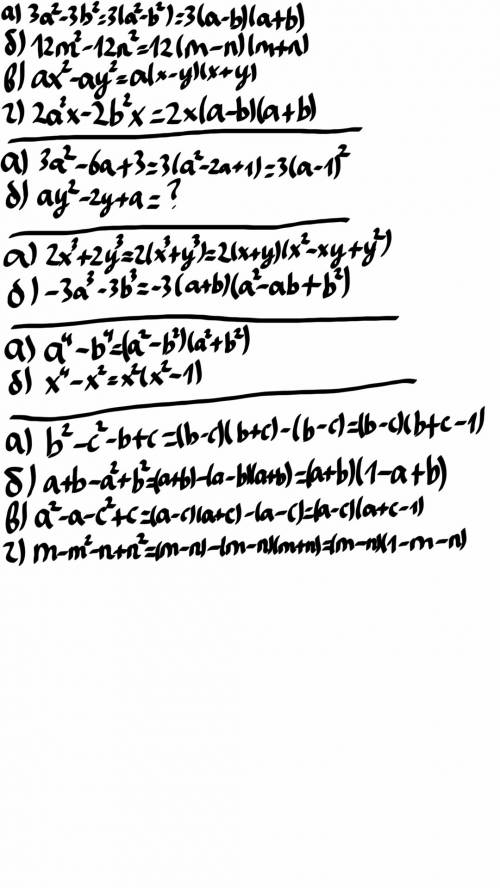 а) 3a²-3b²=3(a²-b²)=3(a-b)(a+b)
б) 12m²-12n²=12(m-n)(m+n)
в) ax²-ay²=a(x-y)(x+y)
г) 2a²x-2b²x=2x(a-b)(a+b)
а) 3a²-6a+3=3(a²-2a+1)=3(a-1)²
б) ay²-2y+a=?
а) 2x³+2y³=2(x³+y³)=2(x+y)(x²-xy+y²)
б) -3a³-3b³=-3(a+b)(a²-ab+b²)
а) a⁴-b⁴=(a²-b²)(a²+b²)
б) x⁴-x²=x²(x²-1)
а) b²-c²-b+c=(b-c)(b+c)-(b-c)=(b-c)(b+c-1)
б) a+b-a²+b²=(a+b)-(a-b)(a+b)=(a+b)(1-a+b)
в) a²-a-c²+c=(a-c)(a+c)-(a-c)=(a-c)(a+c-1)
г) m-m²-n+n²=(m-n)-(m-n)(m+n)=(m-n)(1-m-n)